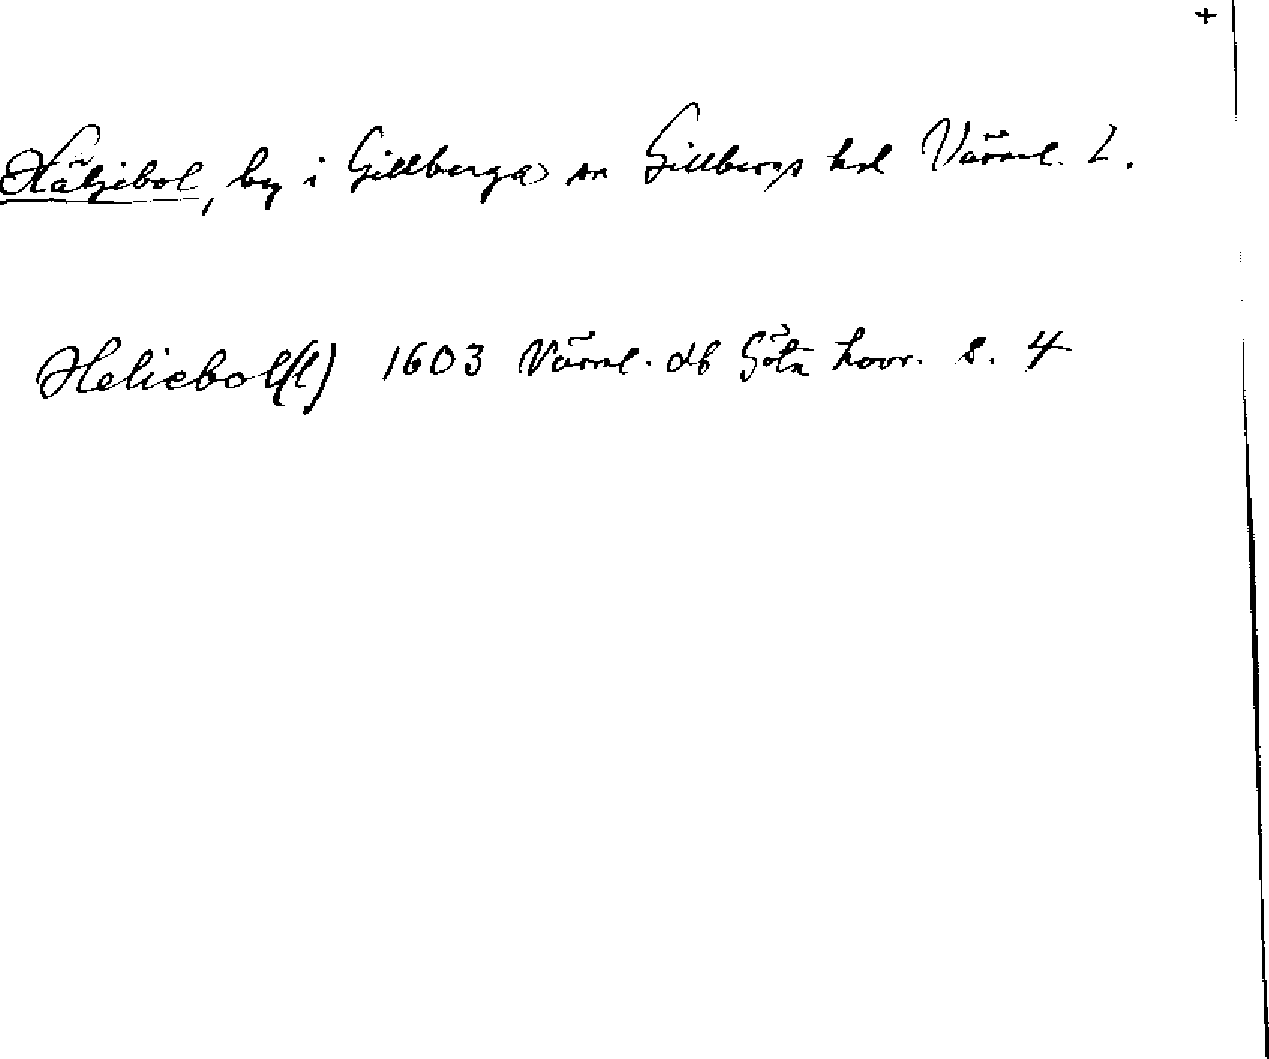 +
Hälgebol, by i Gillberga sn Gillbergs hd Värml. l.
Heliebol(l) 1603 Värml. db Göta hovr. s. 4